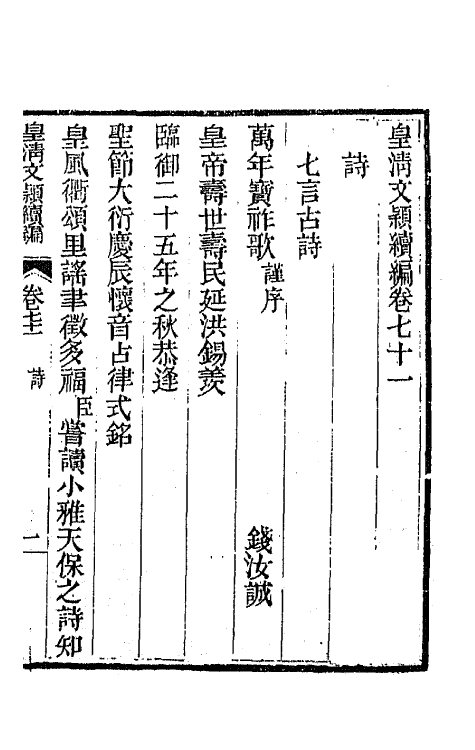 皇清文穎續編卷七十一
詩
七言古詩
萬年寶祚歌謹序 錢汝誠
皇帝壽世壽民延洪錫羨
臨御二十五年之秋恭逢
聖節大衍慶辰懷音占律式銘
皇風衢頌里謠聿徵多福臣嘗讀小雅天保之詩知
皇清文穎續編 卷七十一 詩 一